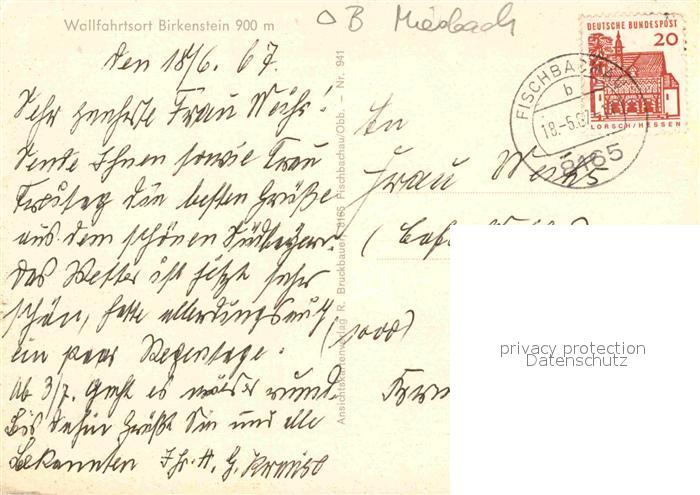 Wallfahrtsort Birkenstein 900 m
OB Miesbach
DEUTSCHE BUNDESPOST
20
LORSCH/HESSEN
FISCHBACHAU
b
18.-5.67
8165
den 18/6. 67.
Sehr geehrte Frau Weihs!
Sende Ihnen sowie Frau
Freitag die besten Grüße
aus dem schönen Südbayern.
Das Wetter ist jetzt sehr
schön, hatte allerdings auch
ein paar Regentage.
Ab 3/7. geht es wieder rund.
Bis dahin grüßt Sie und alle
Bekannten Ihr H. G. Krause
Ansichtskartenverlag R. Bruckbauer, 8165 Fischbachau/Obb. – Nr. 941
An
Frau Weihs
(Cafe
(1000)
privacy protection
Datenschutz